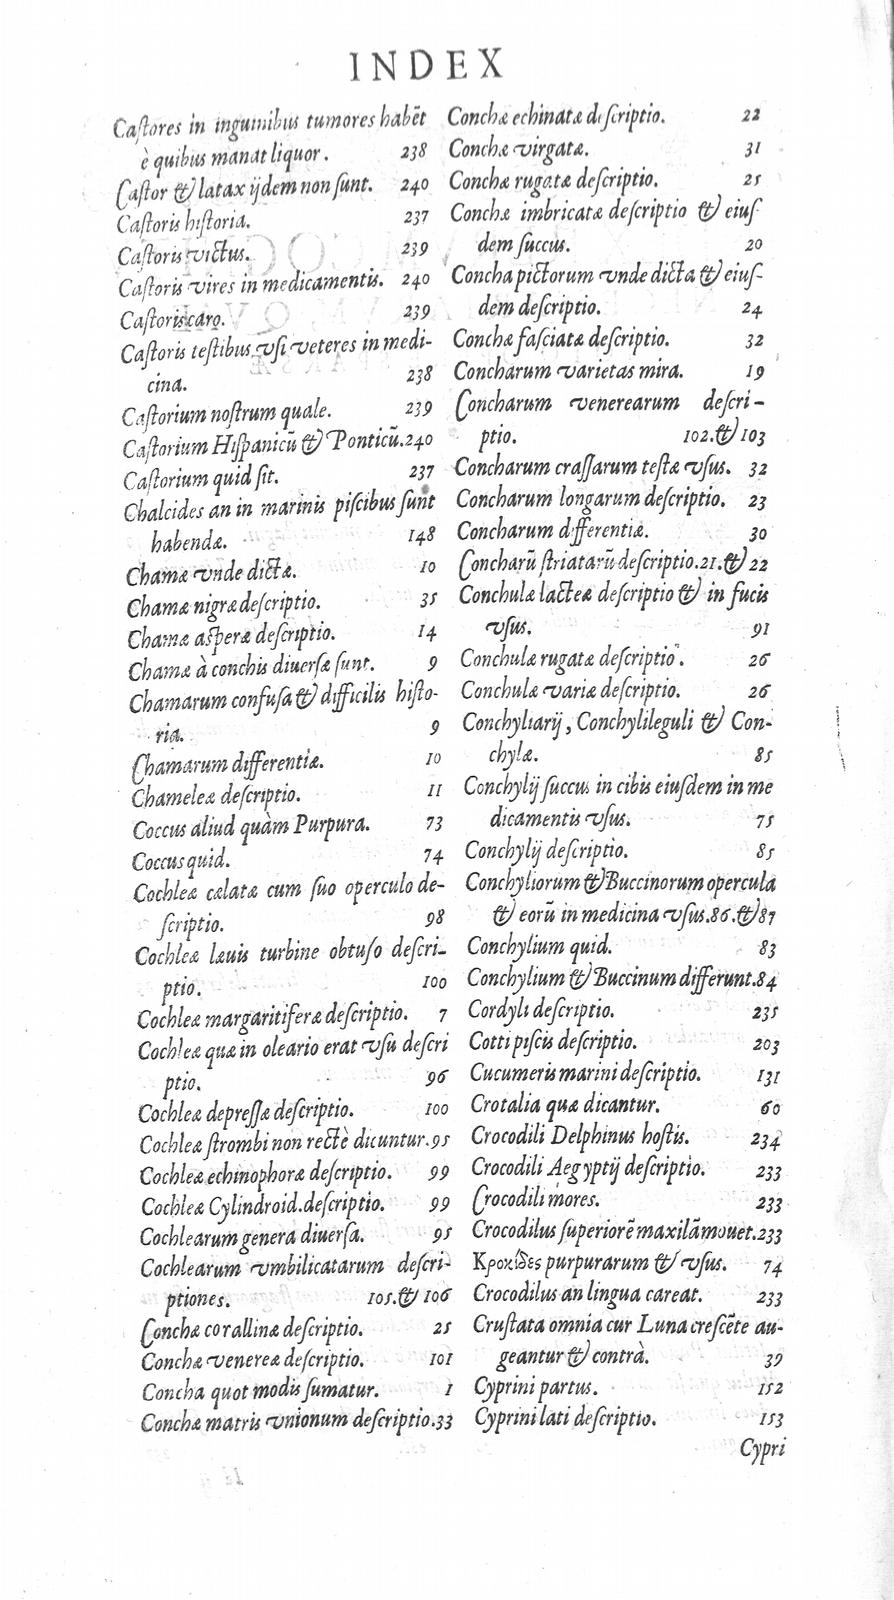 INDEX
Castores in inguinibus tumores habẽt
è quibus manat liquor. 238
Castor & latax ijdem non sunt. 240
Castoris historia. 237
Castoris victus. 239
Castoris vires in medicamentis. 240
Castoris caro. 239
Castoris testibus vsi veteres in medi-
cina. 238
Castorium nostrum quale. 239
Castorium Hispanicũ & Ponticũ. 240
Castorium quid sit. 237
Chalcides an in marinis piscibus sunt
habendæ. 148
Chamæ vnde dictæ. 10
Chamæ nigræ descriptio. 35
Chamæ asperæ descriptio. 14
Chamæ à conchis diuersæ sunt. 9
Chamarum confusa & difficilis histo-
ria. 9
Chamarum differentiæ. 10
Chameleæ descriptio. 11
Coccus aliud quàm Purpura. 73
Coccus quid. 74
Cochleæ cælatæ cum suo operculo de-
scriptio. 98
Cochleæ læuis turbine obtuso descri-
ptio. 100
Cochleæ margaritiferæ descriptio. 7
Cochleæ quæ in oleario erat vsu descri
ptio. 96
Cochleæ depressæ descriptio. 100
Cochleæ strombi non rectè dicuntur. 95
Cochleæ echinophoræ descriptio. 99
Cochleæ Cylindroid. descriptio. 99
Cochlearum genera diuersa. 95
Cochlearum vmbilicatarum descri-
ptiones. 105. & 106
Conchæ corallinæ descriptio. 25
Conchæ venereæ descriptio. 101
Concha quot modis sumatur. 1
Conchæ matris vnionum descriptio. 33
Conchæ echinatæ descriptio. 22
Conchæ virgatæ. 31
Conchæ rugatæ descriptio. 25
Conchæ imbricatæ descriptio & eius-
dem succus. 20
Concha pictorum vnde dicta & eius-
dem descriptio. 24
Conchæ fasciatæ descriptio. 32
Concharum varietas mira. 19
Concharum venerearum descri-
ptio. 102. & 103
Concharum crassarum testæ vsus. 32
Concharum longarum descriptio. 23
Concharum differentiæ. 30
Concharũ striatarũ descriptio. 21. & 22
Conchulæ lacteæ descriptio & in fucis
vsus. 91
Conchulæ rugatæ descriptio. 26
Conchulæ variæ descriptio. 26
Conchyliarij, Conchylileguli & Con-
chylæ. 85
Conchylij succus in cibis eiusdem in me
dicamentis vsus. 75
Conchylij descriptio. 85
Conchyliorum & Buccinorum opercula
& eorũ in medicina vsus. 86. & 87
Conchylium quid. 83
Conchylium & Buccinum differunt. 84
Cordyli descriptio. 235
Cotti piscis descriptio. 203
Cucumeris marini descriptio. 131
Crotalia quæ dicantur. 60
Crocodili Delphinus hostis. 234
Crocodili Aegyptij descriptio. 233
Crocodili mores. 233
Crocodilus superiorẽ maxilã mouet. 233
Κροκίδες purpurarum & vsus. 74
Crocodilus an lingua careat. 233
Crustata omnia cur Luna crescẽte au-
geantur & contrà. 39
Cyprini partus. 152
Cyprini lati descriptio. 153
Cypri